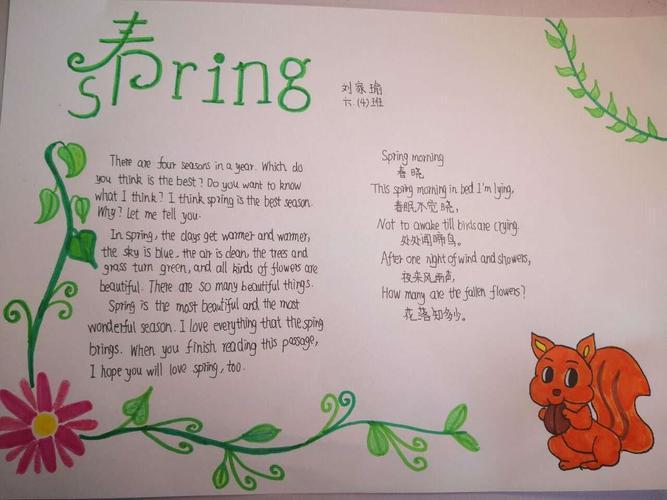 春 Spring
刘家瑜
六.(4)班
There are four seasons in a year. Which do
you think is the best? Do you want to know
what I think? I think spring is the best season.
Why? Let me tell you.
In spring, the days get warmer and warmer,
the sky is blue, the air is clean, the trees and
grass turn green, and all kinds of flowers are
beautiful. There are so many beautiful things.
Spring is the most beautiful and the most
wonderful season. I love everything that the sping
brings. When you finish reading this passage,
I hope you will love spring, too.
Spring morning
春晓
This spring morning in bed I'm lying,
春眠不觉晓,
Not to awake till birds are crying.
处处闻啼鸟。
After one night of wind and showers,
夜来风雨声,
How many are the fallen flowers?
花落知多少。